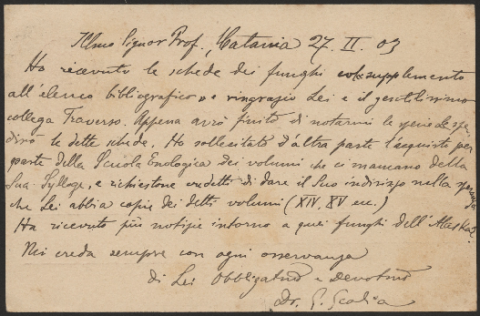 Illmo Signor Prof., Catania 27. II. 03
Ho ricevuto le schede dei funghi col supplemento
all'elenco bibliografico, e ringrazio Lei e il gentilissimo
collega Traverso. Appena avrò finito di notarmi le specie le spe-
dirò le dette schede. Ho sollecitato d'altra parte l'acquisto per
parte della Scuola Enologica dei volumi che ci mancano della
Sua Sylloge, e richiestone credetti di dare il Suo indirizzo nella speranza
che Lei abbia copie dei detti volumi (XIV, XV ecc.)
Ha ricevuto più notizie intorno a quei funghi dell'Alaska?
Mi creda sempre con ogni osservanza
di Lei Obbligatmo e Devotmo
Dr. G. Scalia